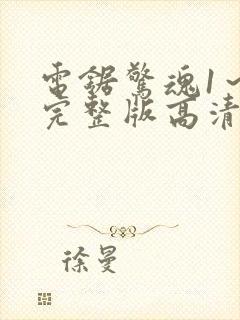 電鋸驚魂1
完整版高清
徐曼